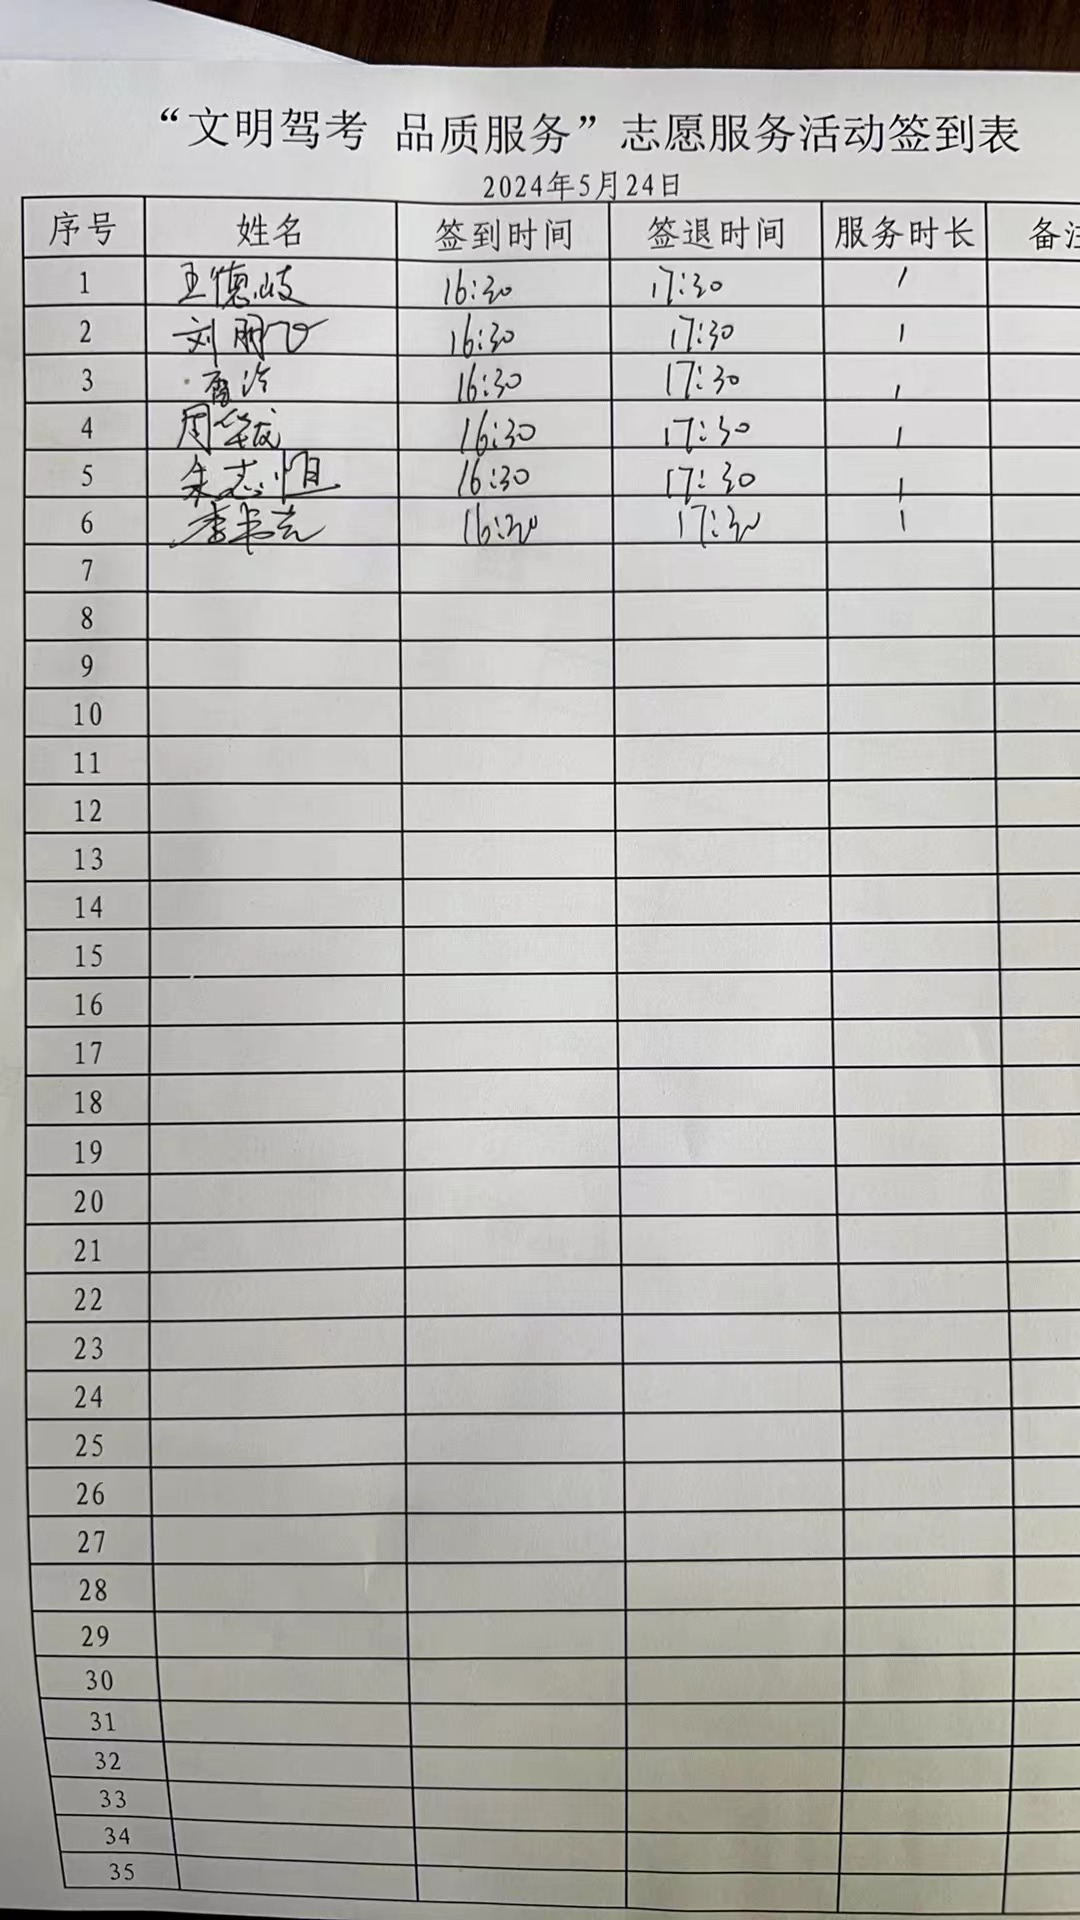 “文明驾考 品质服务”志愿服务活动签到表
2024年5月24日
序号 姓名 签到时间 签退时间 服务时长 备注
1 王德岐 16:30 17:30 1
2 刘朋飞 16:30 17:30 1
3 16:30 17:30 1
4 周华成 16:30 17:30 1
5 朱志恒 16:30 17:30 1
6 李书芸 16:30 17:30 1
7
8
9
10
11
12
13
14
15
16
17
18
19
20
21
22
23
24
25
26
27
28
29
30
31
32
33
34
35